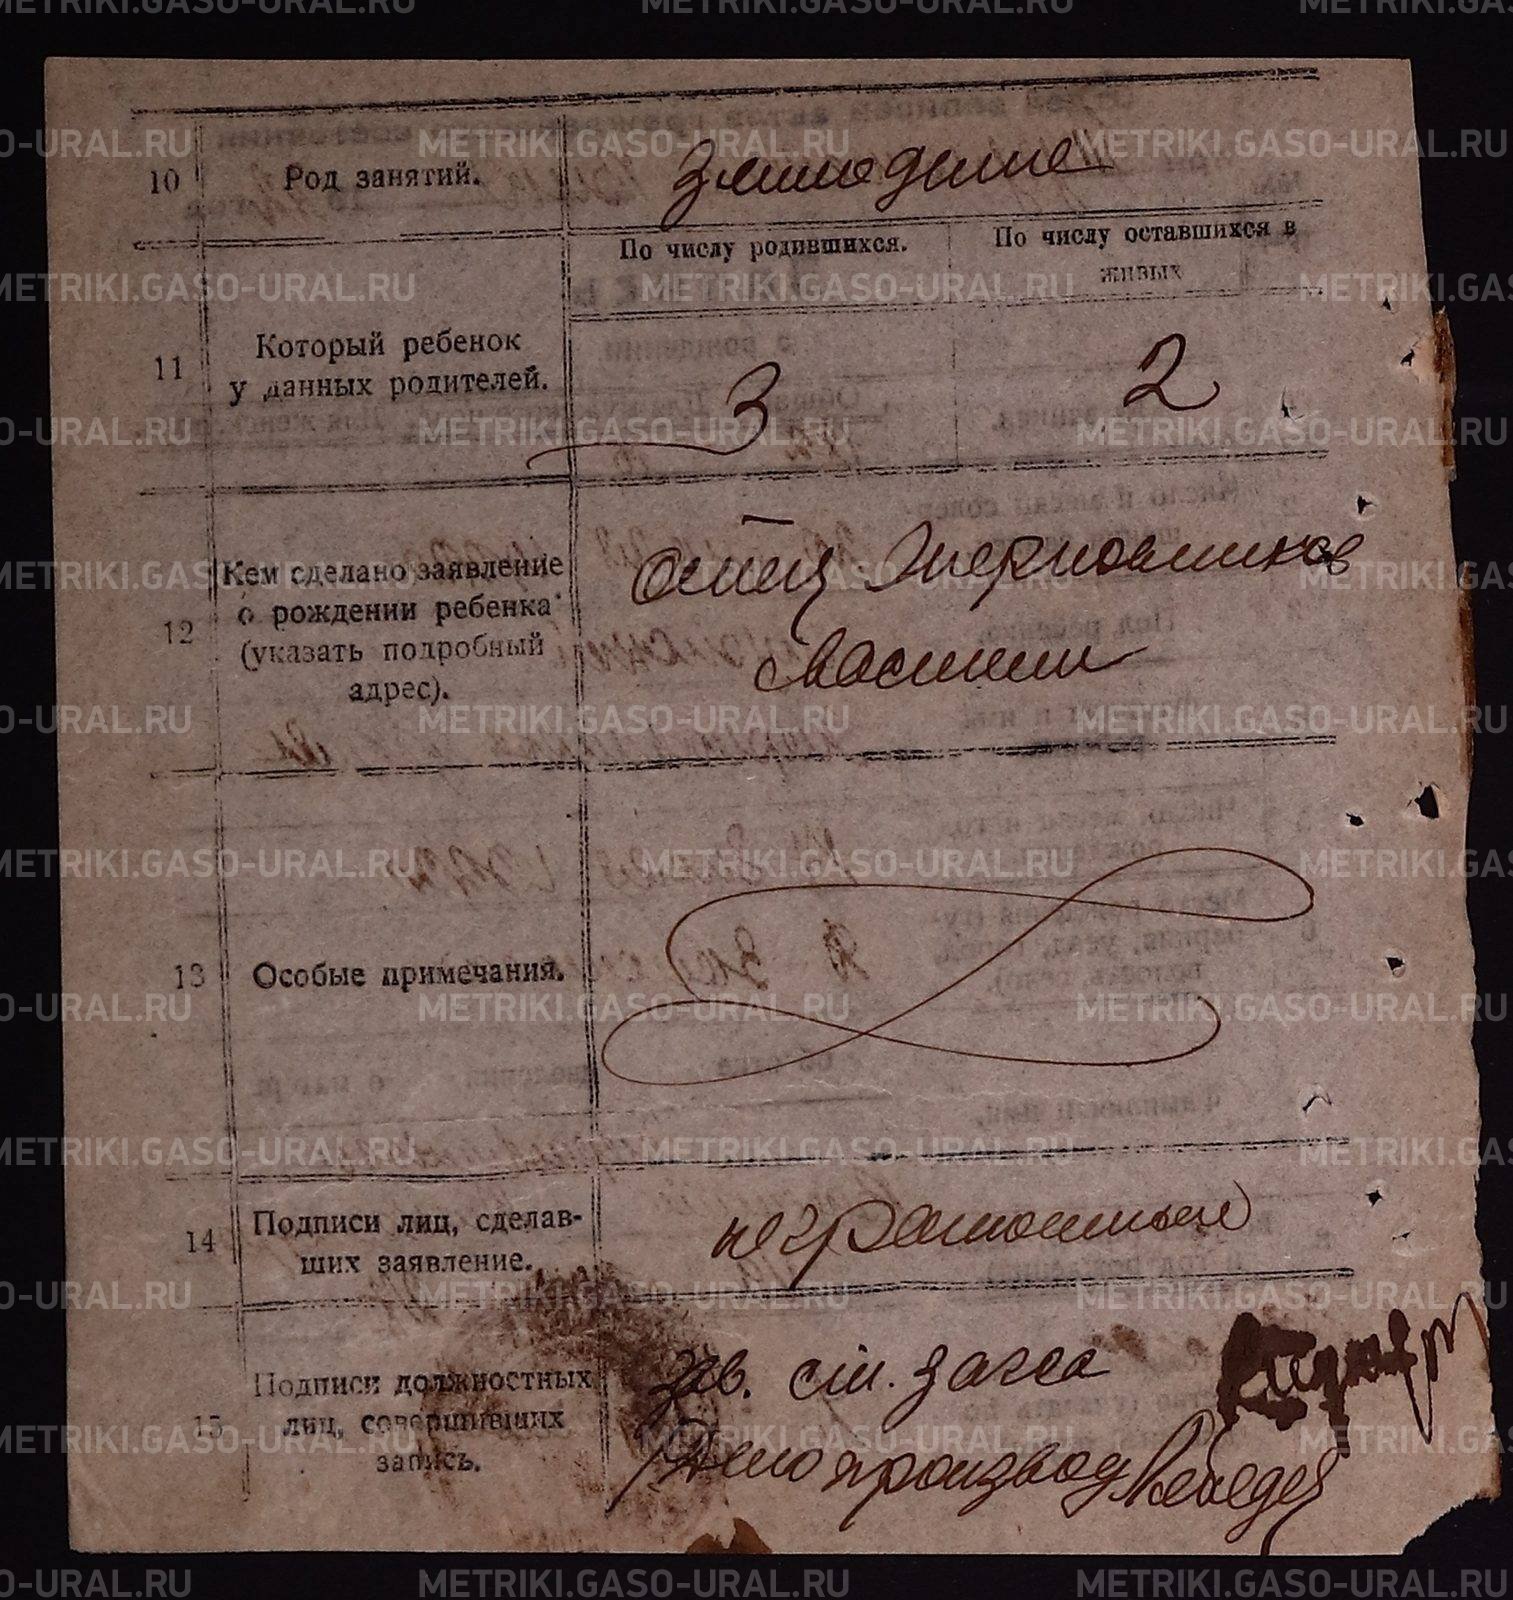 METRIKI.GASO-URAL.RU
10 Род занятий. Земледелие
11 Который ребенок у данных родителей.
По числу родившихся.
По числу оставшихся в живых
3
2
12 Кем сделано заявление
о рождении ребенка
(указать подробный
адрес).
отец
Василий
13 Особые примечания.
14 Подписи лиц, сделав-
ших заявление.
неграмотный
15 Подписи должностных
лиц, совершивших
запись.
Зав. ст. загса
Делопроизвод